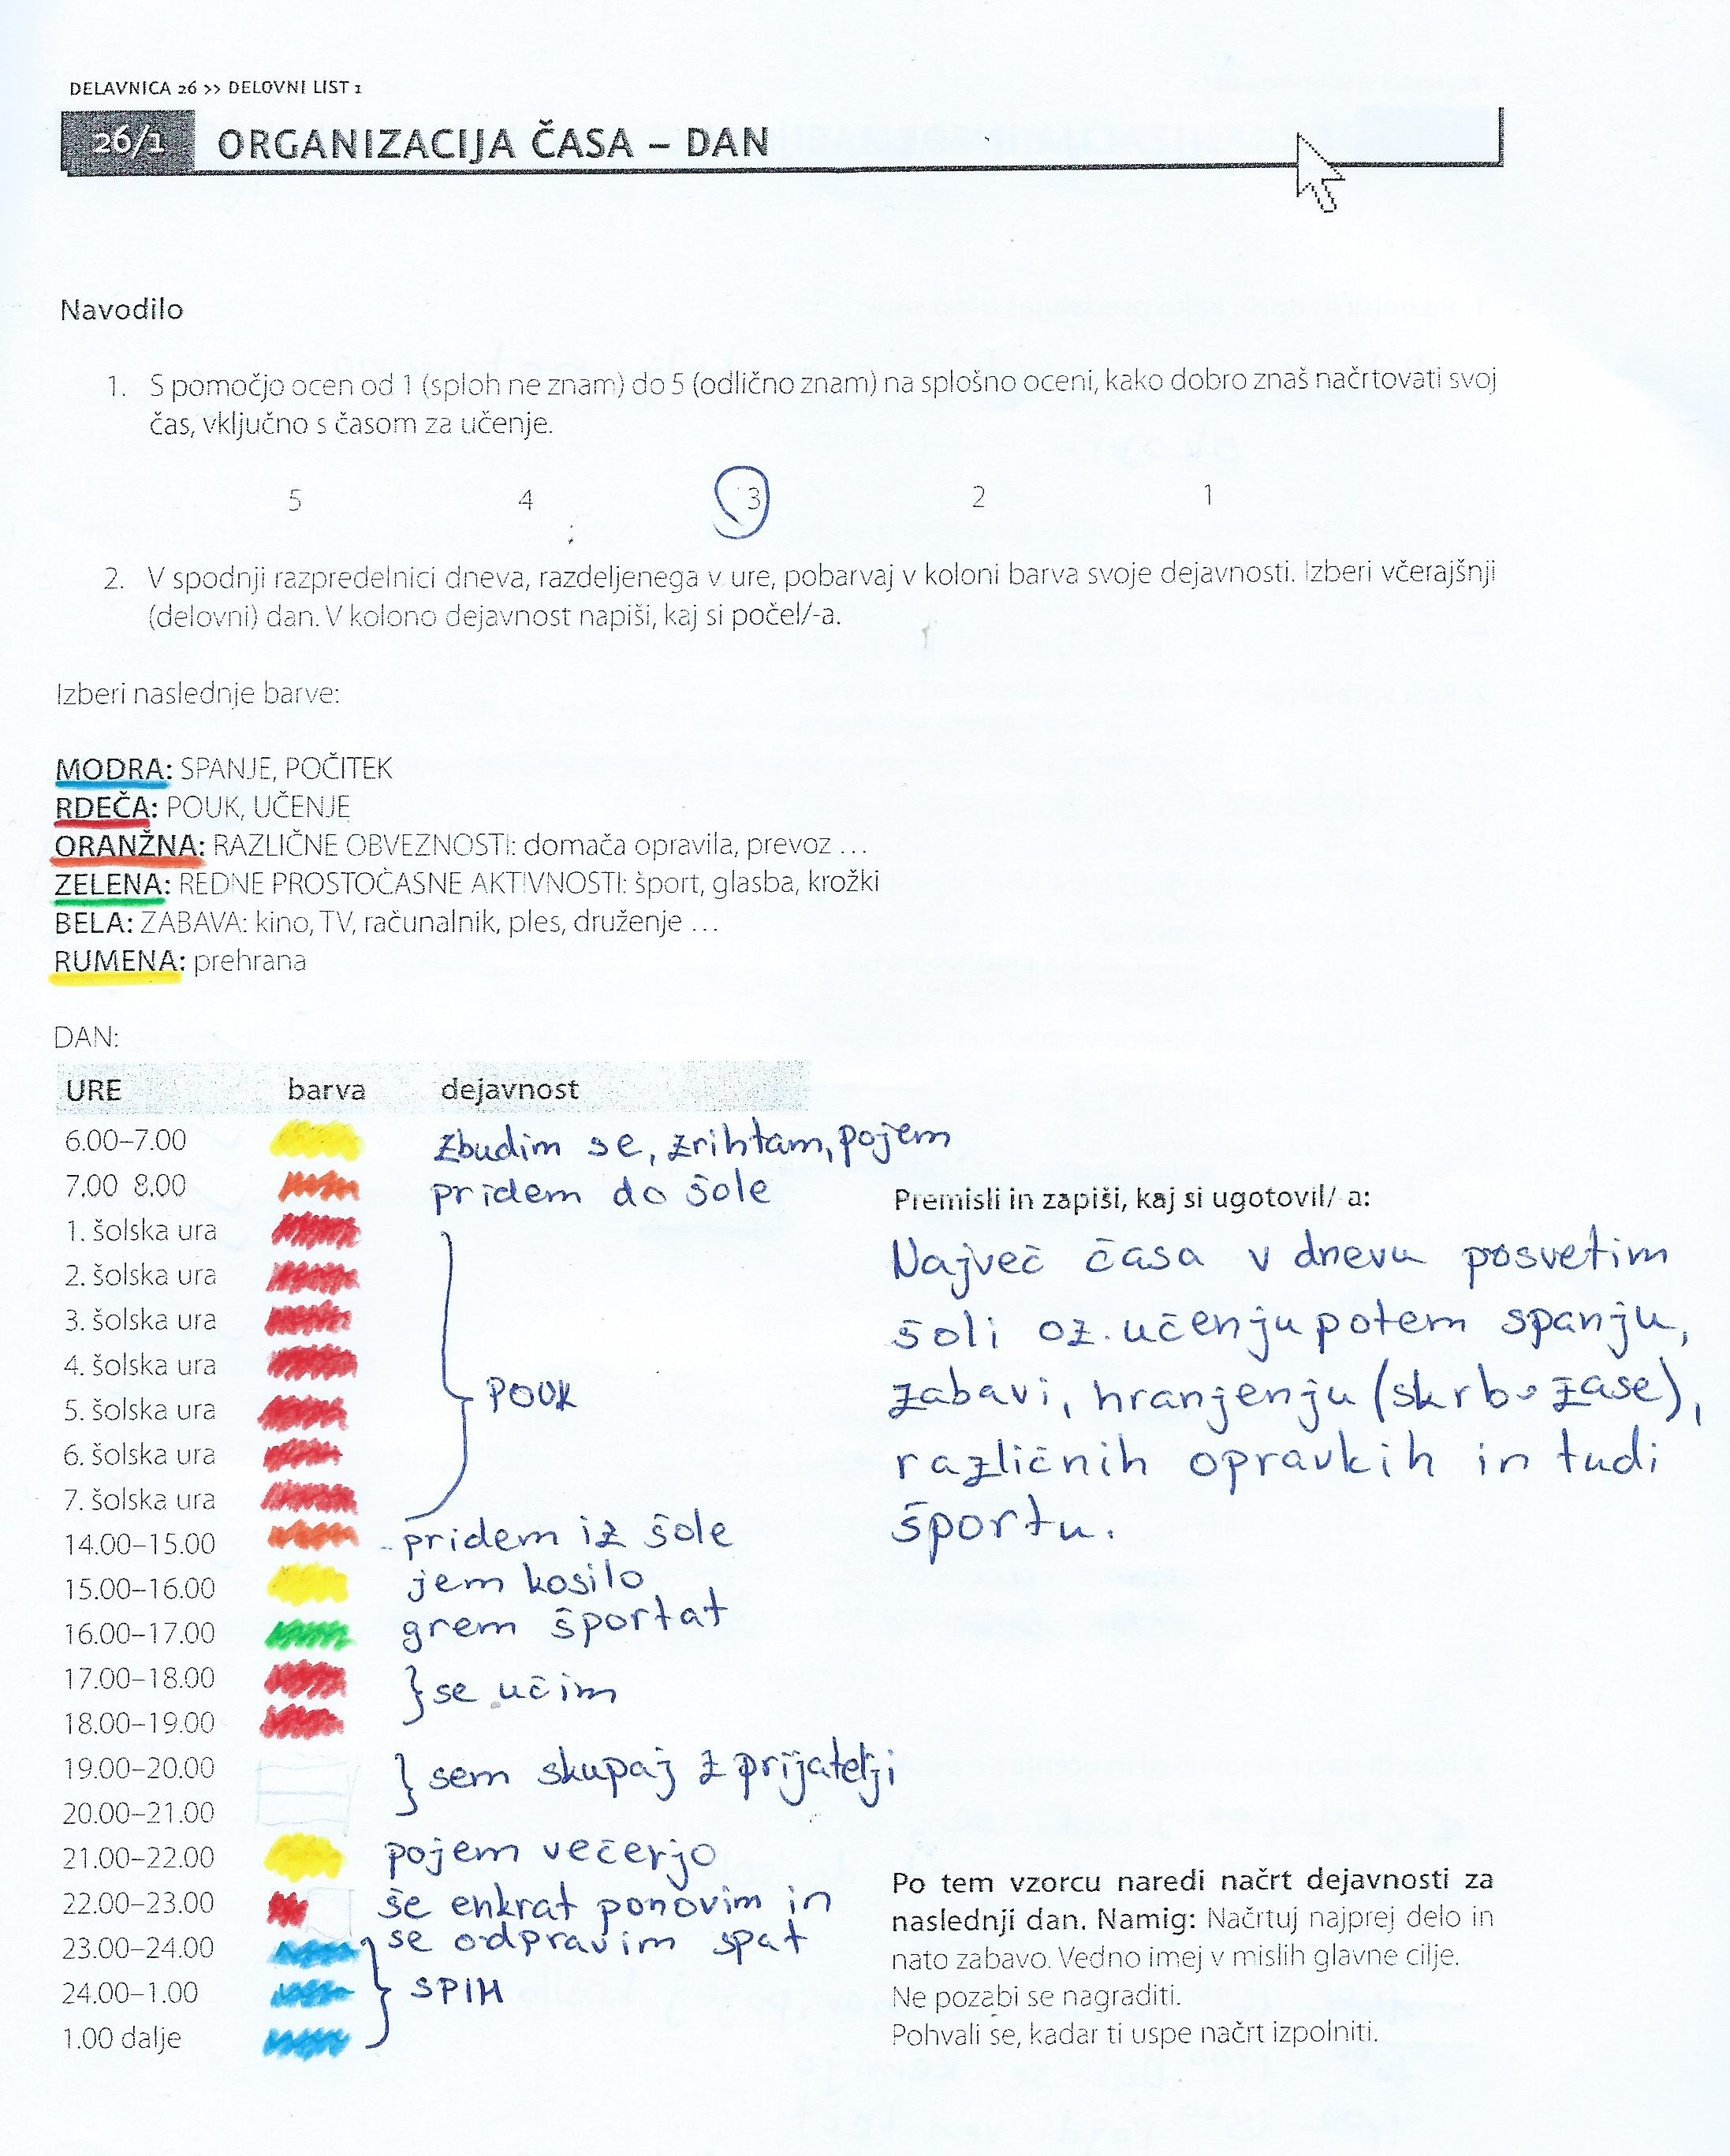 DELAVNICA 26 >> DELOVNI LIST 1
26/1 ORGANIZACIJA ČASA – DAN
Navodilo
1. S pomočjo ocen od 1 (sploh ne znam) do 5 (odlično znam) na splošno oceni, kako dobro znaš načrtovati svoj
čas, vključno s časom za učenje.
5 4 3 2 1
2. V spodnji razpredelnici dneva, razdeljenega v ure, pobarvaj v koloni barva svoje dejavnosti. Izberi včerajšnji
(delovni) dan. V kolono dejavnost napiši, kaj si počel/-a.
Izberi naslednje barve:
MODRA: SPANJE, POČITEK
RDEČA: POUK, UČENJE
ORANŽNA: RAZLIČNE OBVEZNOSTI: domača opravila, prevoz ...
ZELENA: REDNE PROSTOČASNE AKTIVNOSTI: šport, glasba, krožki
BELA: ZABAVA: kino, TV, računalnik, ples, druženje ...
RUMENA: prehrana
DAN:
URE barva dejavnost
6.00–7.00 zbudim se, zrihtam, pojem
7.00 8.00 pridem do šole
1. šolska ura
2. šolska ura
3. šolska ura
4. šolska ura
POUK
5. šolska ura
6. šolska ura
7. šolska ura
14.00–15.00 pridem iz šole
15.00–16.00 jem kosilo
16.00–17.00 grem športat
17.00–18.00 se učim
18.00–19.00
19.00–20.00 sem skupaj z prijatelji
20.00–21.00
21.00–22.00 pojem večerjo
22.00–23.00 še enkrat ponovim in
23.00–24.00 se odpravim spat
24.00–1.00 SPIM
1.00 dalje
Premisli in zapiši, kaj si ugotovil/ a:
Največ časa v dnevu posvetim
šoli oz. učenju potem spanju,
zabavi, hranjenju (skrb zase),
različnih opravkih in tudi
športu.
Po tem vzorcu naredi načrt dejavnosti za
naslednji dan. Namig: Načrtuj najprej delo in
nato zabavo. Vedno imej v mislih glavne cilje.
Ne pozabi se nagraditi.
Pohvali se, kadar ti uspe načrt izpolniti.